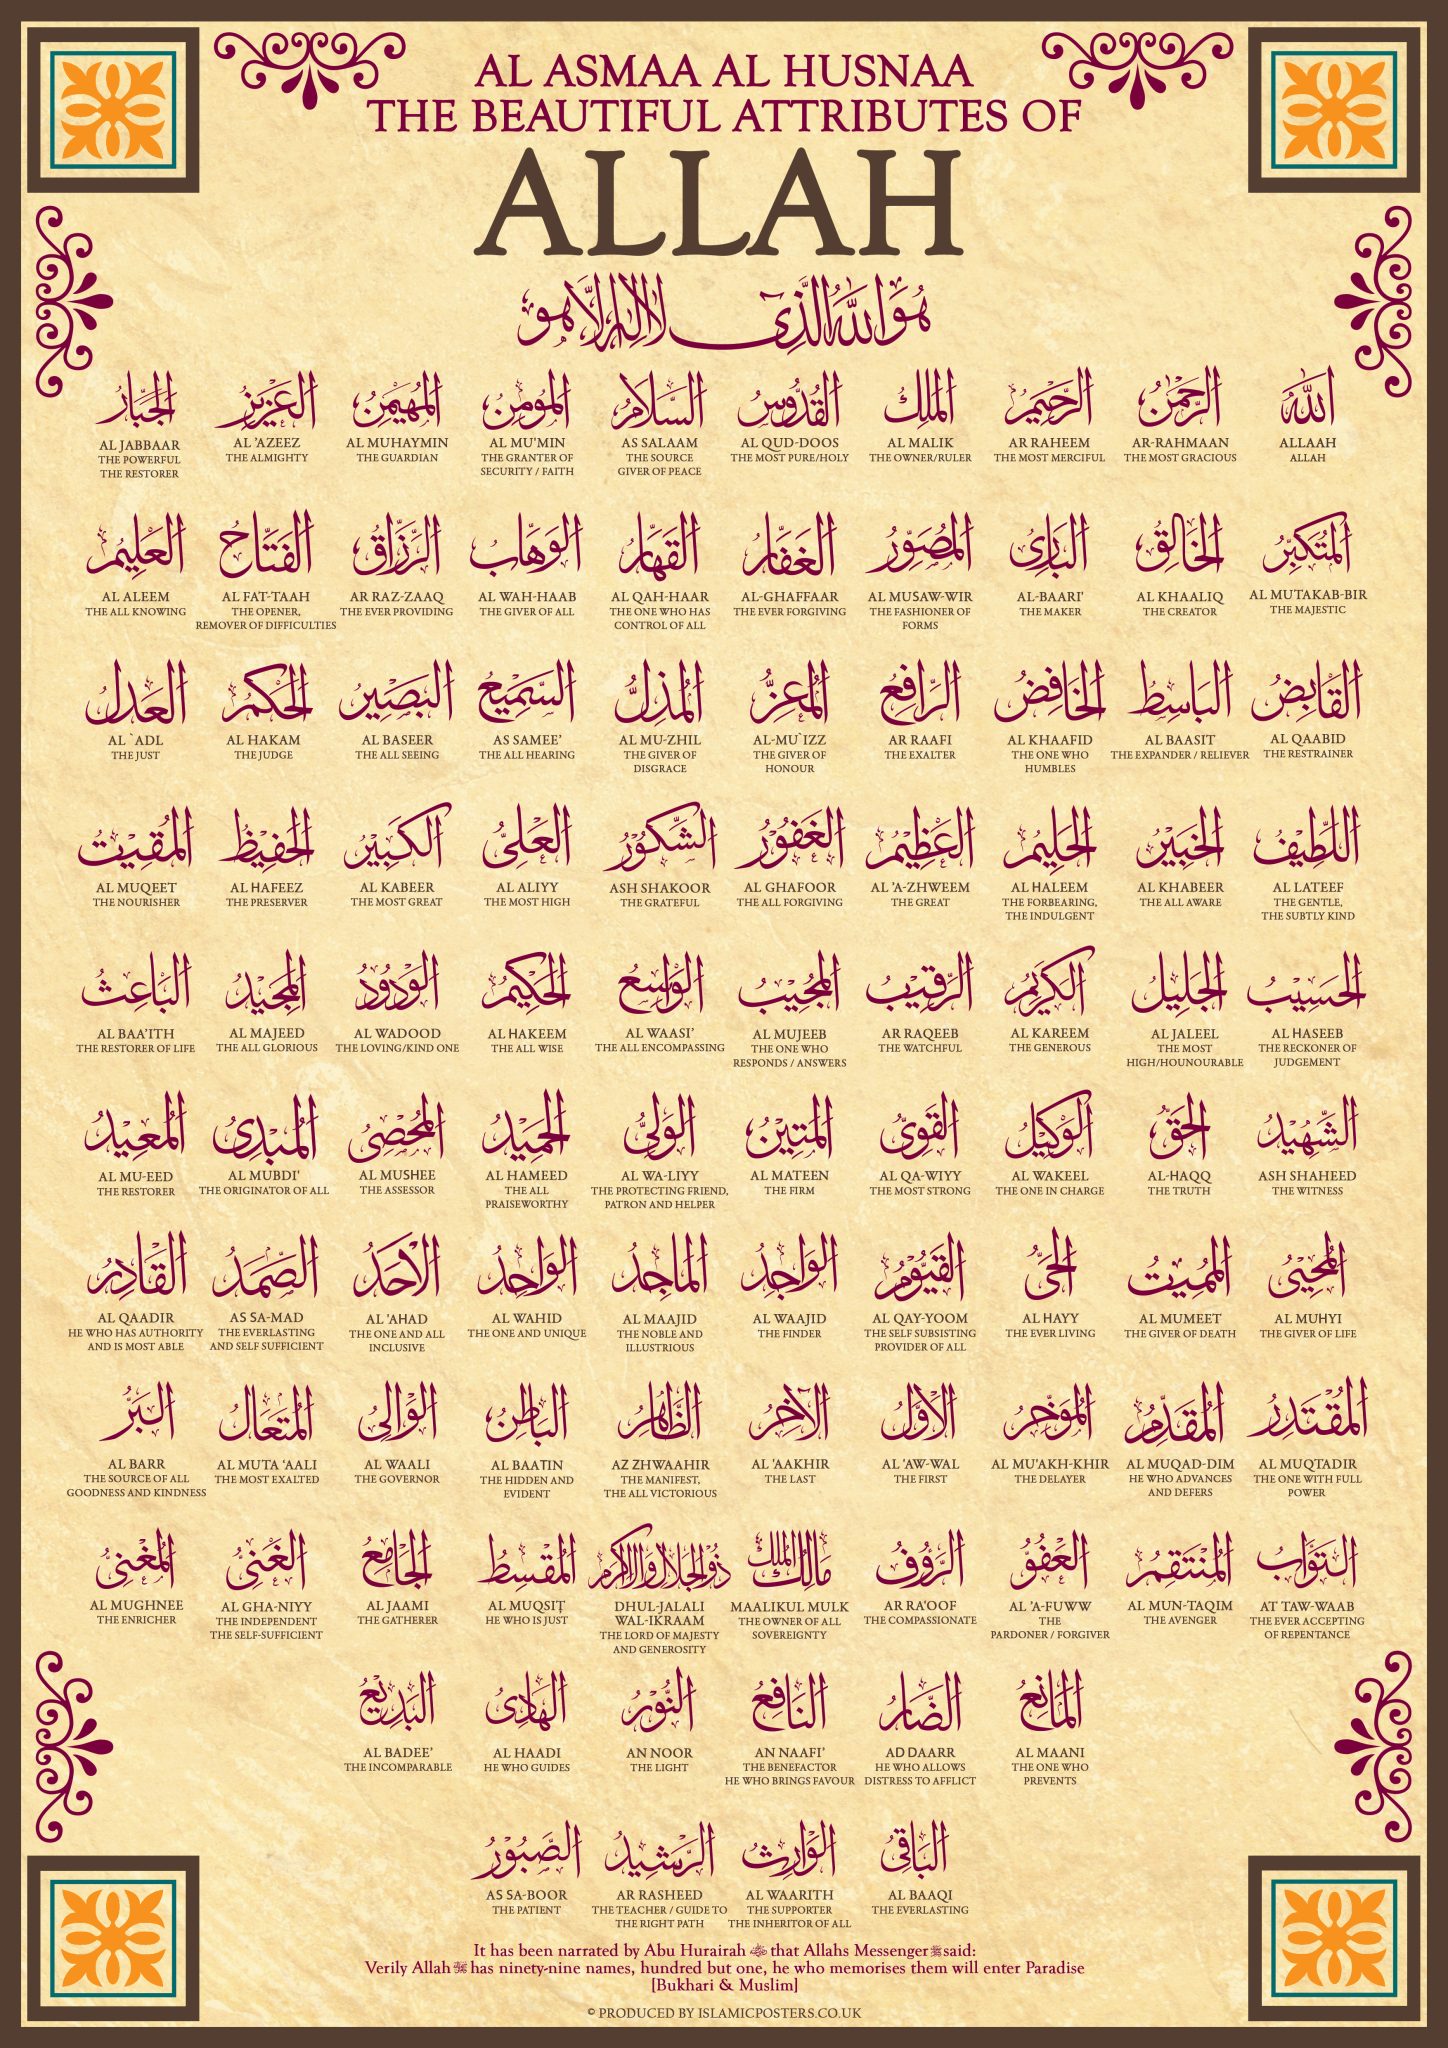 AL ASMAA AL HUSNAA
THE BEAUTIFUL ATTRIBUTES OF
ALLAH
هُوَ اللَّهُ الَّذِي لَا إِلَٰهَ إِلَّا هُوَ
اللَّهُ
ALLAAH
ALLAH
الرَّحْمٰنُ
AR-RAHMAAN
THE MOST GRACIOUS
الرَّحِيْمُ
AR RAHEEM
THE MOST MERCIFUL
المَلِكُ
AL MALIK
THE OWNER/RULER
القُدُّوسُ
AL QUD-DOOS
THE MOST PURE/HOLY
السَّلَامُ
AS SALAAM
THE SOURCE
GIVER OF PEACE
المُؤْمِنُ
AL MU'MIN
THE GRANTER OF
SECURITY / FAITH
المُهَيْمِنُ
AL MUHAYMIN
THE GUARDIAN
العَزِيْزُ
AL 'AZEEZ
THE ALMIGHTY
الجَبَّارُ
AL JABBAAR
THE POWERFUL
THE RESTORER
المُتَكَبِّرُ
AL MUTAKAB-BIR
THE MAJESTIC
الخَالِقُ
AL KHAALIQ
THE CREATOR
البَارِئُ
AL-BAARI'
THE MAKER
المُصَوِّرُ
AL MUSAW-WIR
THE FASHIONER OF
FORMS
الغَفَّارُ
AL-GHAFFAAR
THE EVER FORGIVING
القَهَّارُ
AL QAH-HAAR
THE ONE WHO HAS
CONTROL OF ALL
الوَهَّابُ
AL WAH-HAAB
THE GIVER OF ALL
الرَّزَّاقُ
AR RAZ-ZAAQ
THE EVER PROVIDING
الفَتَّاحُ
AL FAT-TAAH
THE OPENER,
REMOVER OF DIFFICULTIES
العَلِيْمُ
AL ALEEM
THE ALL KNOWING
القَابِضُ
AL QAABID
THE RESTRAINER
البَاسِطُ
AL BAASIT
THE EXPANDER / RELIEVER
الخَافِضُ
AL KHAAFID
THE ONE WHO
HUMBLES
الرَّافِعُ
AR RAAFI
THE EXALTER
المُعِزُّ
AL-MU`IZZ
THE GIVER OF
HONOUR
المُذِلُّ
AL MU-ZHIL
THE GIVER OF
DISGRACE
السَّمِيْعُ
AS SAMEE'
THE ALL HEARING
البَصِيْرُ
AL BASEER
THE ALL SEEING
الحَكَمُ
AL HAKAM
THE JUDGE
العَدْلُ
AL `ADL
THE JUST
اللَّطِيْفُ
AL LATEEF
THE GENTLE,
THE SUBTLY KIND
الخَبِيْرُ
AL KHABEER
THE ALL AWARE
الحَلِيْمُ
AL HALEEM
THE FORBEARING,
THE INDULGENT
العَظِيْمُ
AL 'A-ZHWEEM
THE GREAT
الغَفُوْرُ
AL GHAFOOR
THE ALL FORGIVING
الشَّكُوْرُ
ASH SHAKOOR
THE GRATEFUL
العَلِيُّ
AL ALIYY
THE MOST HIGH
الكَبِيْرُ
AL KABEER
THE MOST GREAT
الحَفِيْظُ
AL HAFEEZ
THE PRESERVER
المُقِيْتُ
AL MUQEET
THE NOURISHER
الحَسِيْبُ
AL HASEEB
THE RECKONER OF
JUDGEMENT
الجَلِيْلُ
AL JALEEL
THE MOST
HIGH/HOUNOURABLE
الكَرِيْمُ
AL KAREEM
THE GENEROUS
الرَّقِيْبُ
AR RAQEEB
THE WATCHFUL
المُجِيْبُ
AL MUJEEB
THE ONE WHO
RESPONDS / ANSWERS
الوَاسِعُ
AL WAASI'
THE ALL ENCOMPASSING
الحَكِيْمُ
AL HAKEEM
THE ALL WISE
الوَدُوْدُ
AL WADOOD
THE LOVING/KIND ONE
المَجِيْدُ
AL MAJEED
THE ALL GLORIOUS
البَاعِثُ
AL BAA'ITH
THE RESTORER OF LIFE
الشَّهِيْدُ
ASH SHAHEED
THE WITNESS
الحَقُّ
AL-HAQQ
THE TRUTH
الوَكِيْلُ
AL WAKEEL
THE ONE IN CHARGE
القَوِيُّ
AL QA-WIYY
THE MOST STRONG
المَتِيْنُ
AL MATEEN
THE FIRM
الوَلِيُّ
AL WA-LIYY
THE PROTECTING FRIEND,
PATRON AND HELPER
الحَمِيْدُ
AL HAMEED
THE ALL
PRAISEWORTHY
المُحْصِي
AL MUSHEE
THE ASSESSOR
المُبْدِئُ
AL MUBDI'
THE ORIGINATOR OF ALL
المُعِيْدُ
AL MU-EED
THE RESTORER
المُحْيِي
AL MUHYI
THE GIVER OF LIFE
المُمِيْتُ
AL MUMEET
THE GIVER OF DEATH
الحَيُّ
AL HAYY
THE EVER LIVING
القَيُّوْمُ
AL QAY-YOOM
THE SELF SUBSISTING
PROVIDER OF ALL
الوَاجِدُ
AL WAAJID
THE FINDER
المَاجِدُ
AL MAAJID
THE NOBLE AND
ILLUSTRIOUS
الوَاحِدُ
AL WAHID
THE ONE AND UNIQUE
الأَحَدُ
AL 'AHAD
THE ONE AND ALL
INCLUSIVE
الصَّمَدُ
AS SA-MAD
THE EVERLASTING
AND SELF SUFFICIENT
القَادِرُ
AL QAADIR
HE WHO HAS AUTHORITY
AND IS MOST ABLE
المُقْتَدِرُ
AL MUQTADIR
THE ONE WITH FULL
POWER
المُقَدِّمُ
AL MUQAD-DIM
HE WHO ADVANCES
AND DEFERS
المُؤَخِّرُ
AL MU'AKH-KHIR
THE DELAYER
الأَوَّلُ
AL 'AW-WAL
THE FIRST
الآخِرُ
AL 'AAKHIR
THE LAST
الظَّاهِرُ
AZ ZHWAAHIR
THE MANIFEST,
THE ALL VICTORIOUS
البَاطِنُ
AL BAATIN
THE HIDDEN AND
EVIDENT
الوَالِي
AL WAALI
THE GOVERNOR
المُتَعَالُ
AL MUTA 'AALI
THE MOST EXALTED
البَرُّ
AL BARR
THE SOURCE OF ALL
GOODNESS AND KINDNESS
التَوَّابُ
AT TAW-WAAB
THE EVER ACCEPTING
OF REPENTANCE
المُنْتَقِمُ
AL MUN-TAQIM
THE AVENGER
العَفُوُّ
AL 'A-FUWW
THE
PARDONER / FORGIVER
الرَّؤُوْفُ
AR RA'OOF
THE COMPASSIONATE
مَالِكُ المُلْكِ
MAALIKUL MULK
THE OWNER OF ALL
SOVEREIGNTY
ذُو الجَلَالِ وَالإِكْرَامِ
DHUL-JALALI
WAL-IKRAAM
THE LORD OF MAJESTY
AND GENEROSITY
المُقْسِطُ
AL MUQSIT
HE WHO IS JUST
الجَامِعُ
AL JAAMI
THE GATHERER
الغَنِيُّ
AL GHA-NIYY
THE INDEPENDENT
THE SELF-SUFFICIENT
المُغْنِيُ
AL MUGHNEE
THE ENRICHER
المَانِعُ
AL MAANI
THE ONE WHO
PREVENTS
الضَّارُ
AD DAARR
HE WHO ALLOWS
DISTRESS TO AFFLICT
النَّافِعُ
AN NAAFI'
THE BENEFACTOR
HE WHO BRINGS FAVOUR
النُّوْرُ
AN NOOR
THE LIGHT
الهَادِيُ
AL HAADI
HE WHO GUIDES
البَدِيْعُ
AL BADEE'
THE INCOMPARABLE
البَاقِيُ
AL BAAQI
THE EVERLASTING
الوَارِثُ
AL WAARITH
THE SUPPORTER
THE INHERITOR OF ALL
الرَّشِيْدُ
AR RASHEED
THE TEACHER / GUIDE TO
THE RIGHT PATH
الصَّبُوْرُ
AS SA-BOOR
THE PATIENT
It has been narrated by Abu Hurairah that Allahs Messenger ﷺ said:
Verily Allah has ninety-nine names, hundred but one, he who memorises them will enter Paradise
[Bukhari & Muslim]
© PRODUCED BY ISLAMICPOSTERS.CO.UK